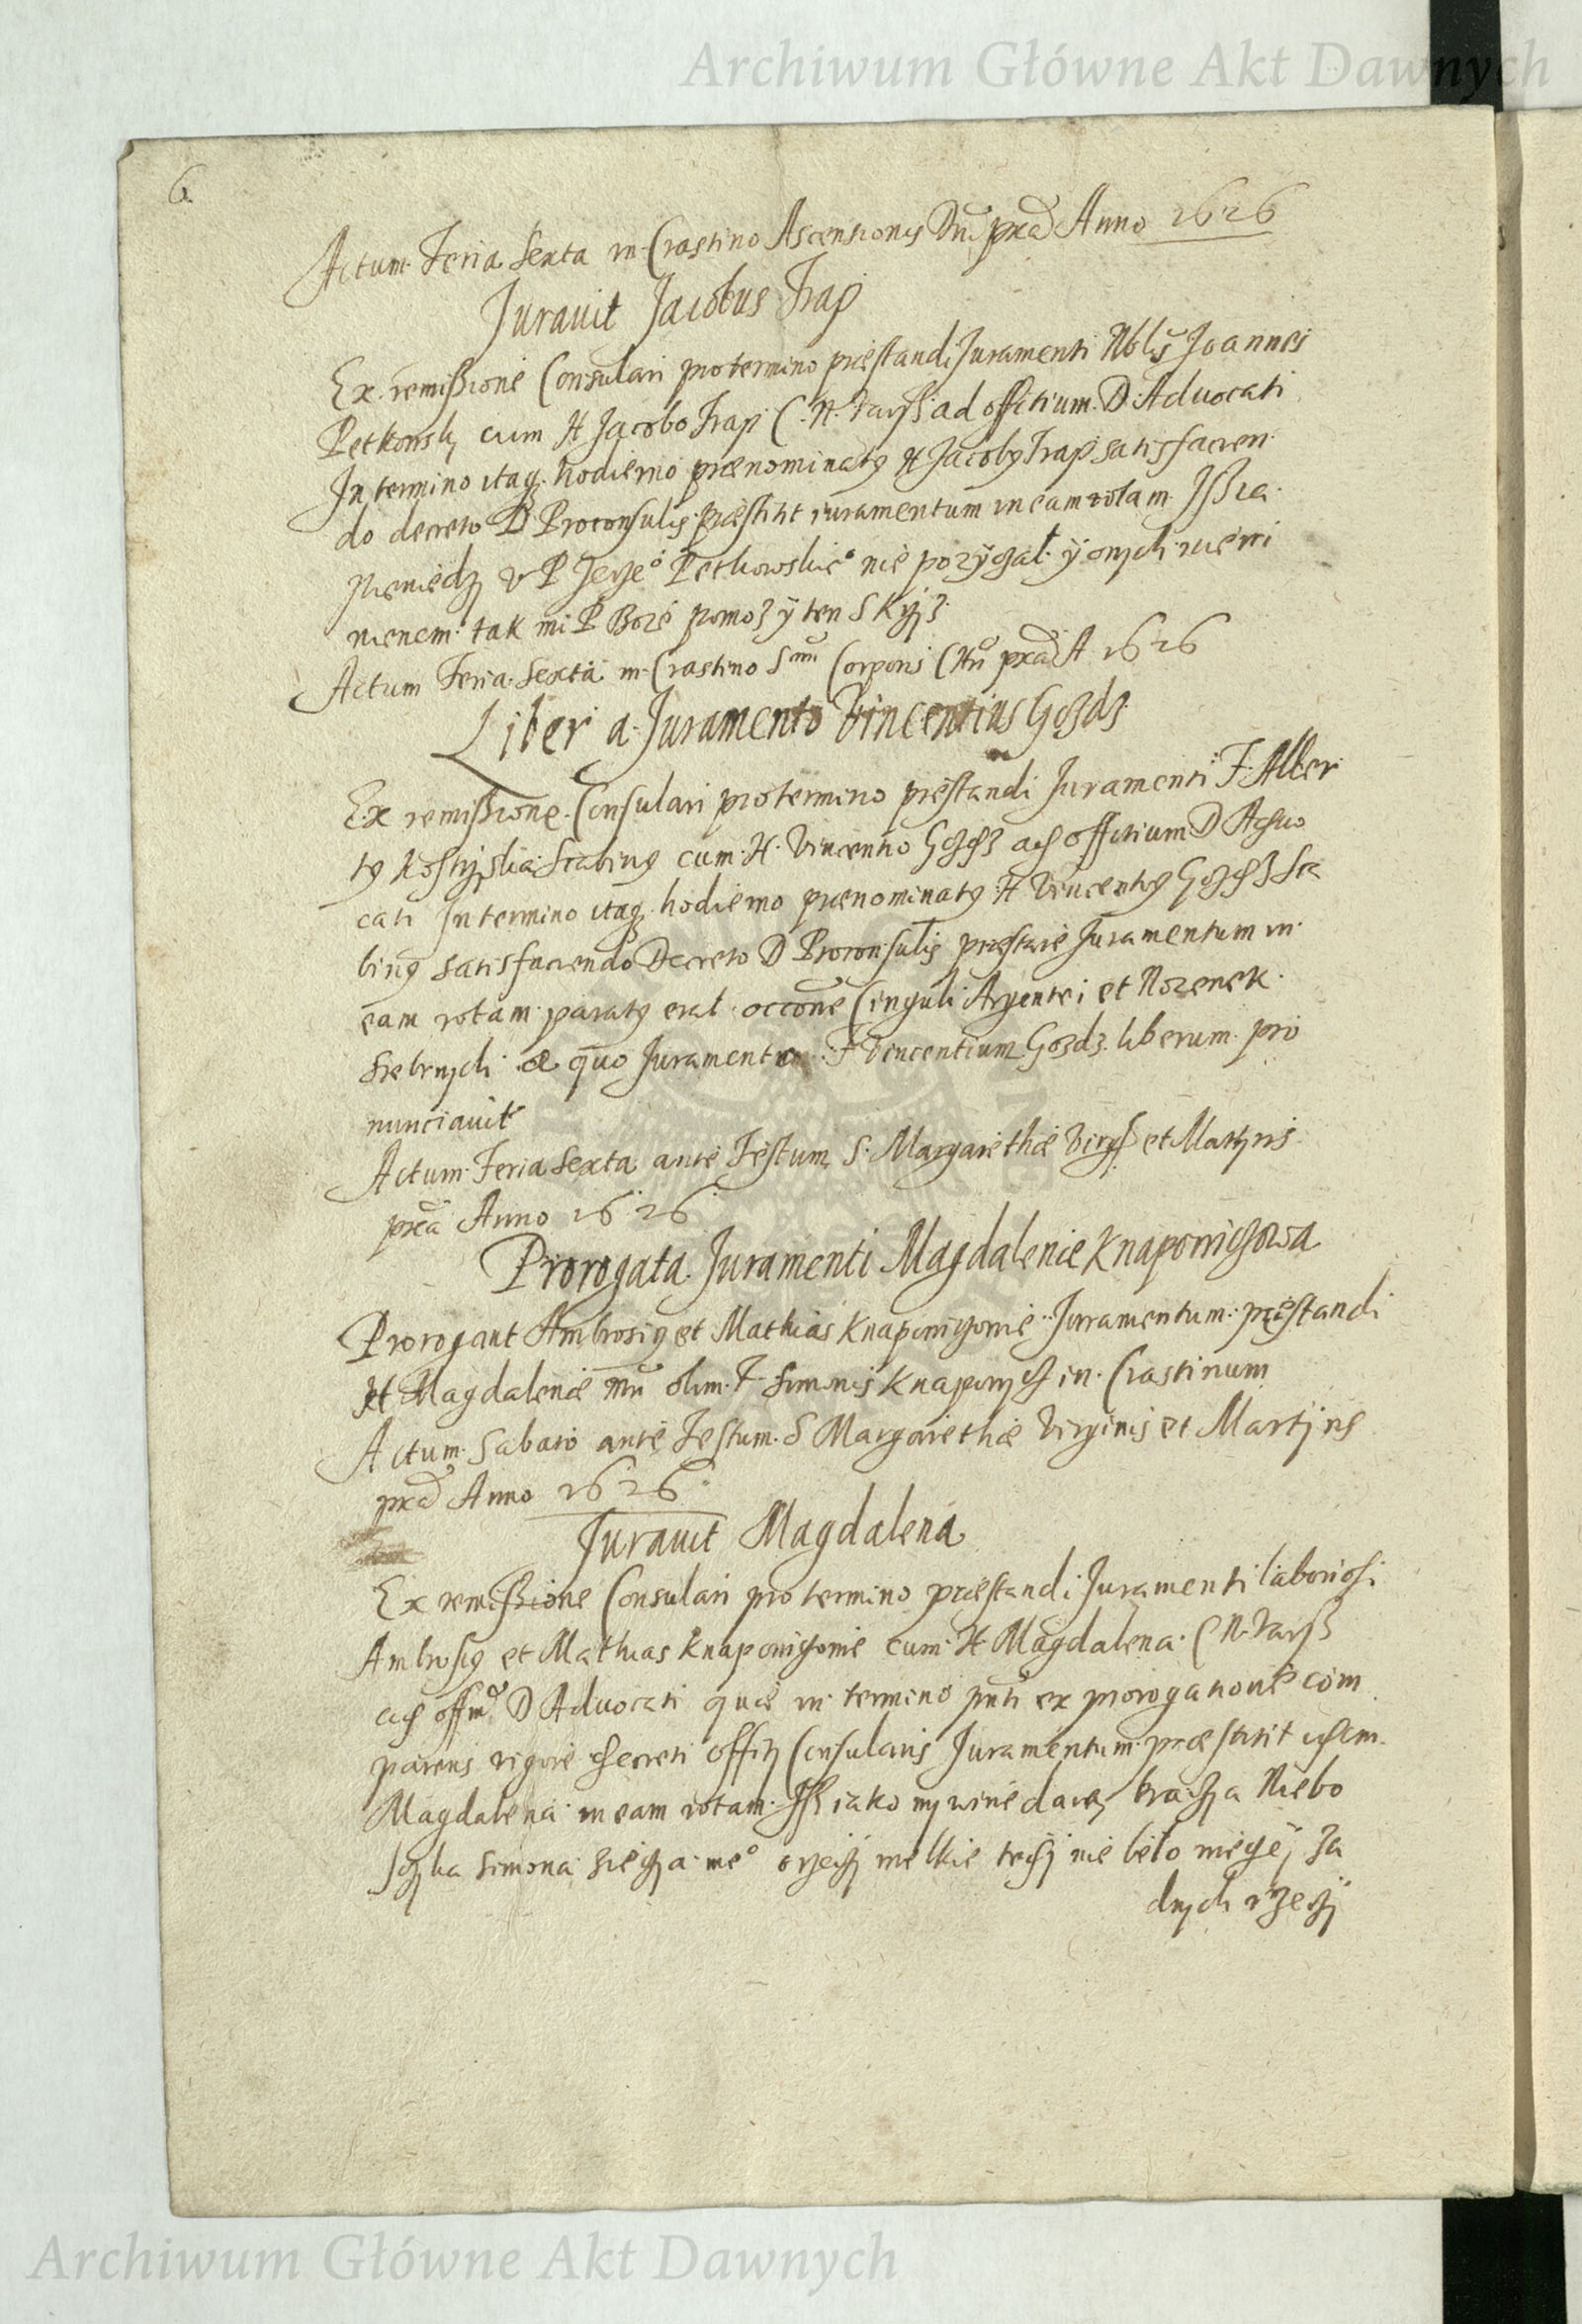 Archiwum Główne Akt Dawnych
6
Actum Feria Sexta in Crastino Ascensionis Dni præd Anno 1626
Juravit Jacobus Trap
Ex remissione Consulari pro termino præstandi Juramenti Nblis Joannes
Petkowsky cum H Jacobo Trap C. N. Varss ad officium D. Advocati
In termino itaq hodierno prænominatg H Jacobg Trap satisfacien
do decreto D Proconsulis præstitit iuramentum in eam rotam
Pieniedzy v P Petkowskie° nie pozyczal y onych
nienem tak mi P Boze pomoz y ten S Kyz
Actum Feria Sexta in Crastino Smi Corporis Chri præd A 1626
Liber a Juramento Vincentius Gozdz
Ex remissione Consulari pro termino præstandi Juramenti F. Alber
tg Scabing cum H. Vincentio Gozdz ad officium D Advo
cati In termino itaq hodierno prænominatg H Vincentig Gozdz Sca
bing satisfaciendo Decreto D Proconsulis præstare Juramentum in
eam rotam paratg erat occone Cinguli Argentei et Nozenek
Srebrnych a quo Juramento F Vincentium Gozdz liberum pro
nunciavit
Actum Feria Sexta ante Festum S. Margarethæ Virg et Martyris
præd Anno 1626
Prorogata Juramenti Magdalenæ Knapowiczowa
Prorogant Ambrosig et Mathias Knapowiczowie Juramentum præstandi
H Magdalenæ olim F Simonis Knapowycz in Crastinum
Actum Sabato ante Festum S Margarethæ Virginis et Martyris
præd Anno 1626
Juravit Magdalena
Ex remissione Consulari pro termino præstandi Juramenti laboriosi
Ambrosig et Mathias Knapowiczowie cum H Magdalena C N. Varss
ad offm D Advocati quæ in termino pnti ex prorogatione com
parens vigore decreti Officy Consularis Juramentum præstitit
Magdalena in eam rotam Jss iako my winedawcy bracza Niebo
Sczka Simona nie beło wiecey za
dnych rzeczy
Archiwum Główne Akt Dawnych